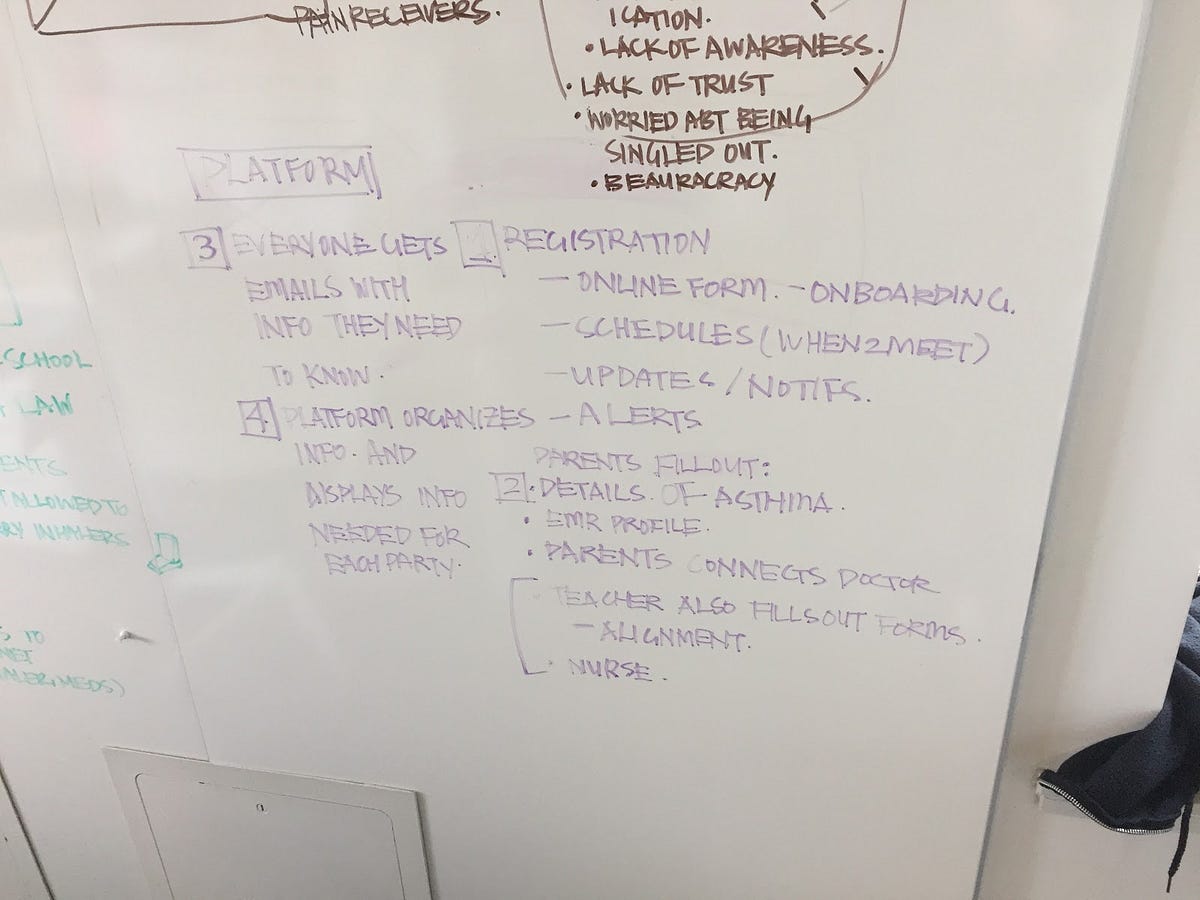 PAIN RECEIVERS.
ICATION.
• LACK OF AWARENESS.
• LACK OF TRUST
• WORRIED ABT BEING
SINGLED OUT.
• BEAURACRACY
PLATFORM
1 REGISTRATION
— ONLINE FORM. - ONBOARDING.
— SCHEDULES (WHEN2MEET)
— UPDATES / NOTIFS.
— ALERTS
PARENTS FILLOUT:
2 • DETAILS OF ASTHMA.
• EMR PROFILE.
• PARENTS CONNECTS DOCTOR
• TEACHER ALSO FILLS OUT FORMS.
— ALIGNMENT.
• NURSE.
3 EVERYONE GETS
EMAILS WITH
INFO THEY NEED
TO KNOW.
4. PLATFORM ORGANIZES
INFO. AND
DISPLAYS INFO
NEEDED FOR
EACH PARTY.
SCHOOL
LAW
ENTS
ALLOWED TO
RY INHALERS
S TO
NET
MEDS)